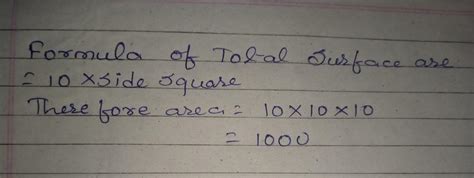 Formula of Total Surface are
= 10 x side square
There fore area = 10 x 10 x 10
= 1000